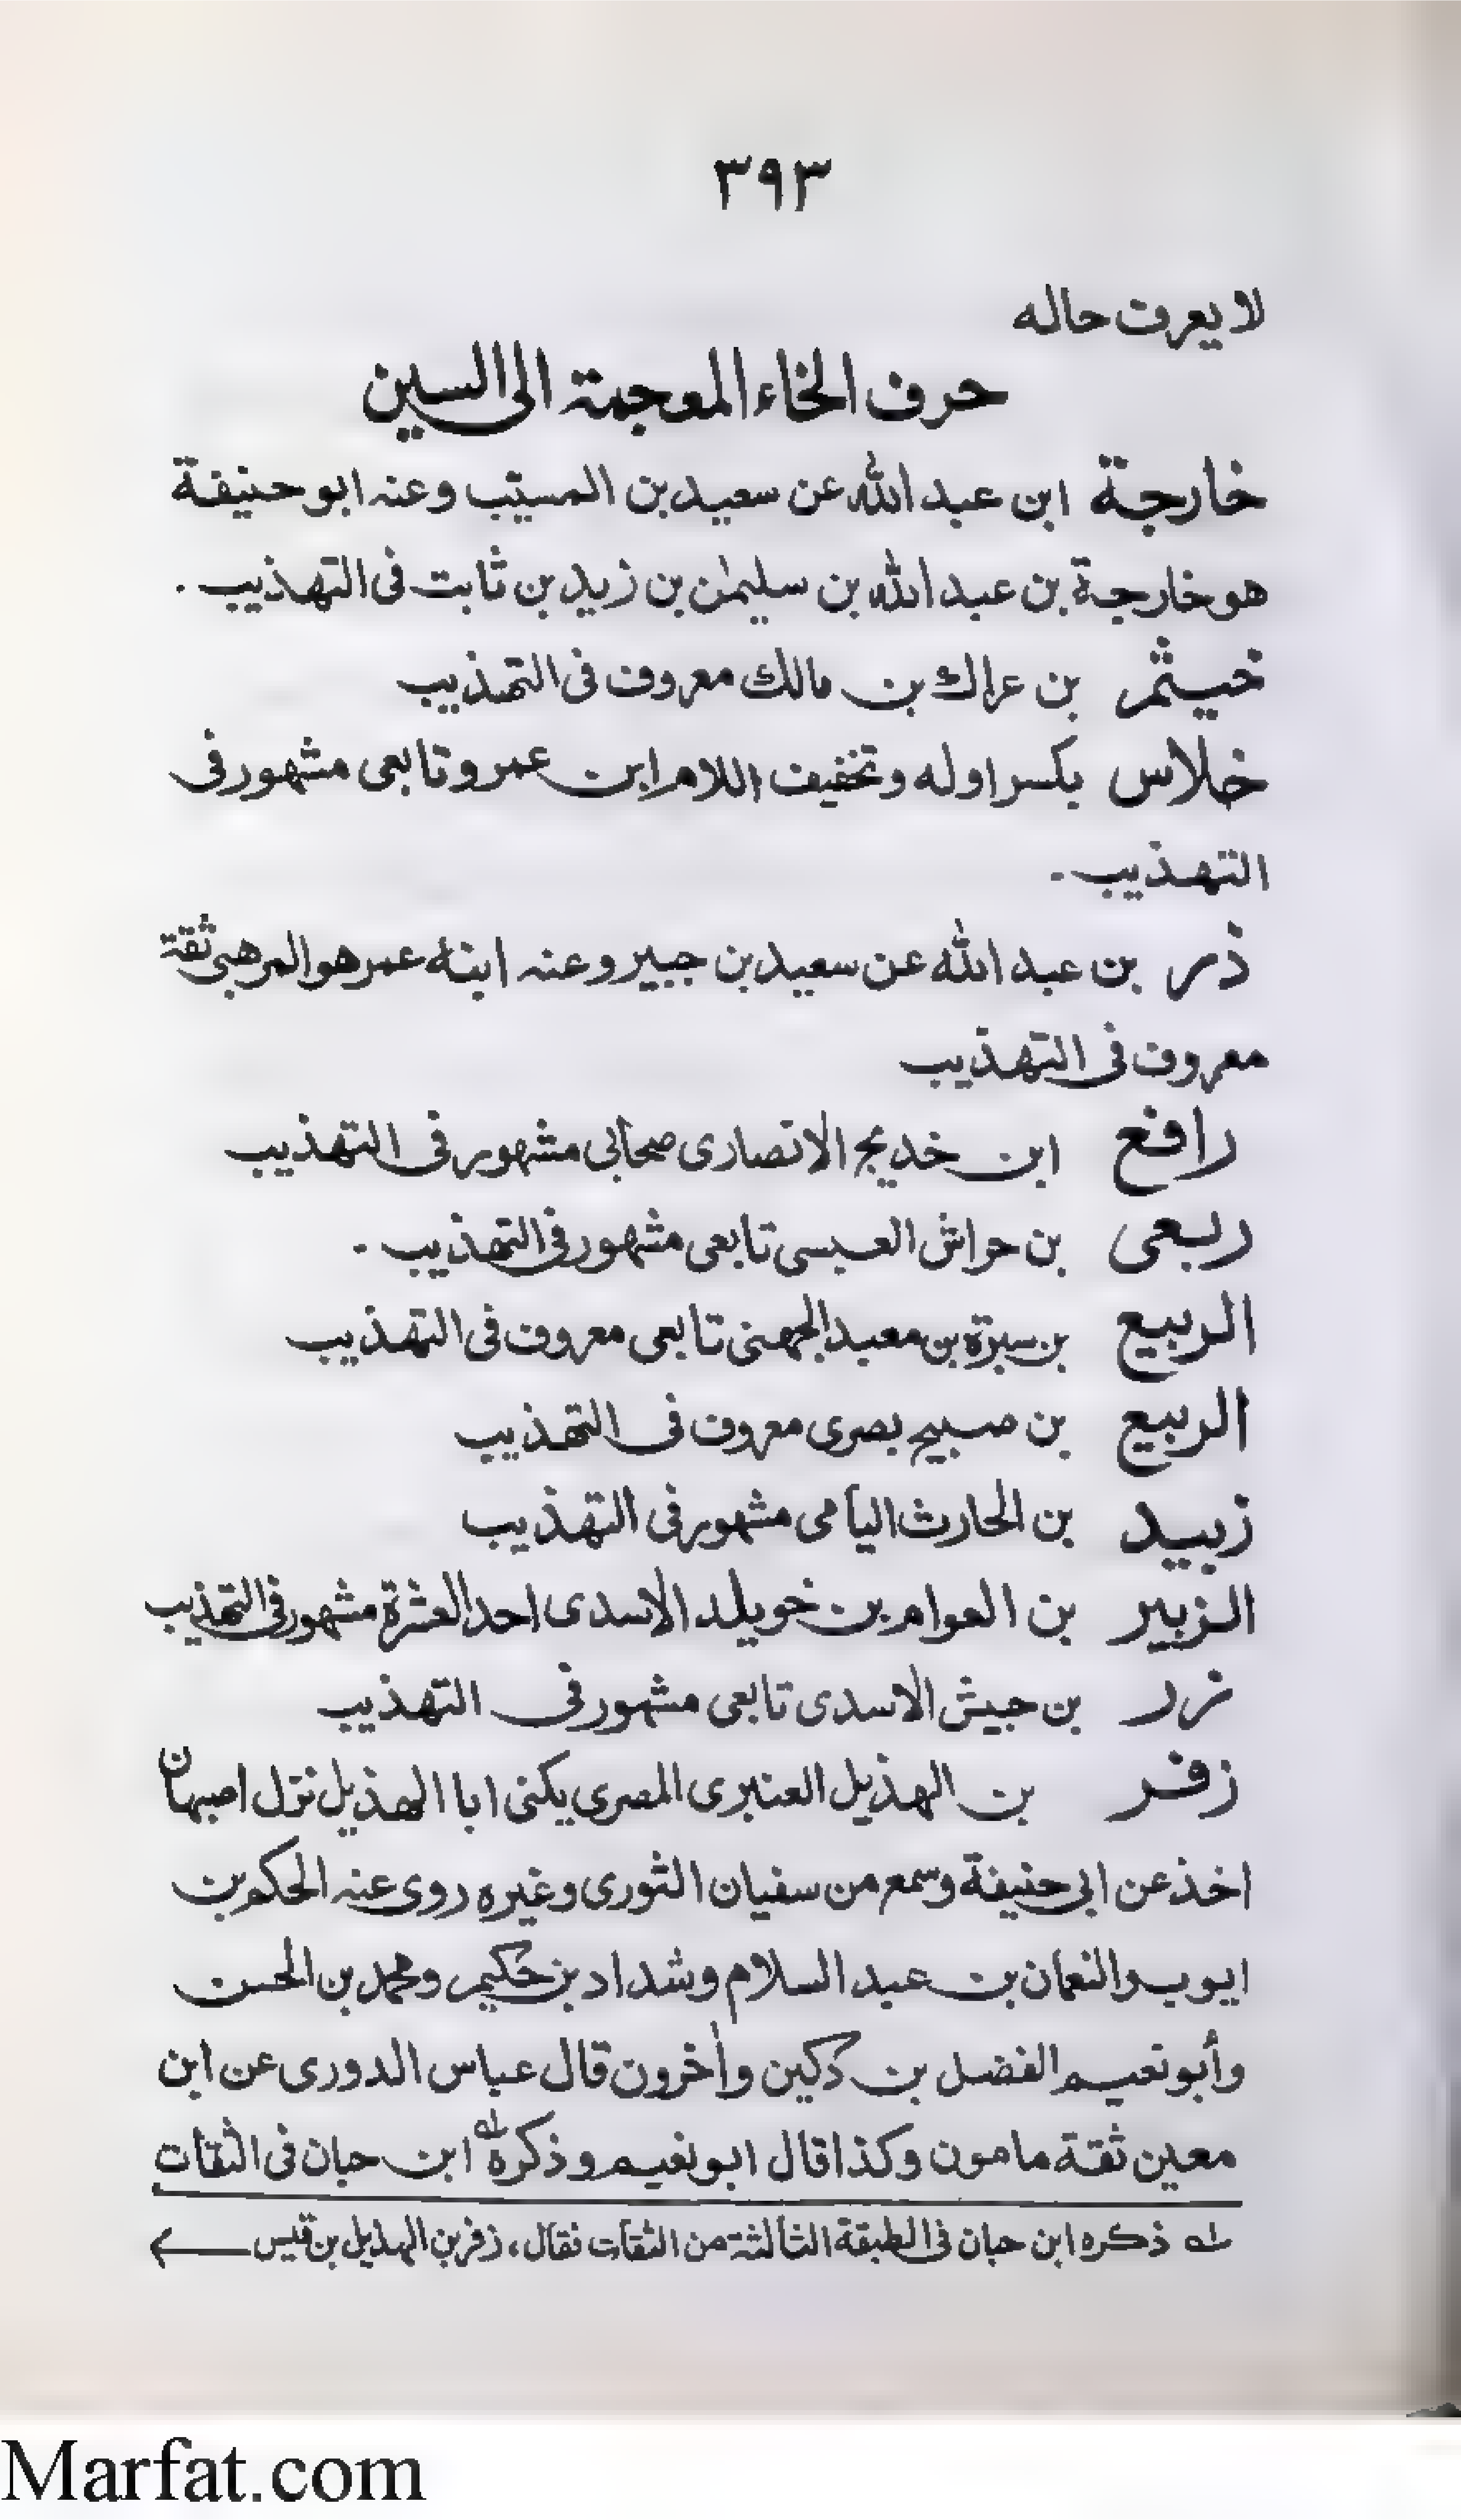 ٣٩٣
لا يعرف حاله
حرف الخاء المعجمة الى السين
خارجة ابن عبد الله عن سعيد بن المسيّب وعنه ابو حنيفة
هو خارجة بن عبد الله بن سليمٰن بن زيد بن ثابت فى التهذيب .
خيثم بن عراك بن مالك معروف فى التهذيب
خلاس بكسر اوله وتخفيف اللام ابن عمرو تابعى مشهور فى
التهذيب .
ذر بن عبد الله عن سعيد بن جبير وعنه ابنه عمر هو المرهبى ثقة
معروف فى التهذيب
رافع ابن خديج الانصارى صحابى مشهور فى التهذيب
ربعى بن حراش العبسى تابعى مشهور فى التهذيب .
الربيع بن سبرة بن معبد الجهنى تابعى معروف فى التهذيب
الربيع بن صبيح بصرى معروف فى التهذيب
زبيد بن الحارث اليامى مشهور فى التهذيب
الزبير بن العوام بن خويلد الاسدى احد العشرة مشهور فى التهذيب
زر بن حبيش الاسدى تابعى مشهور فى التهذيب
زفر بن الهذيل العنبرى المصرى يكنى ابا الهذيل نزل اصبهان
اخذ عن ابى حنيفة وسمع من سفيان الثورى وغيره روى عنه الحكم بن
ايوب والنعمان بن عبد السلام وشداد بن حكيم ومحمد بن الحسن
وأبو نعيم الفضل بن دكين وأخرون قال عباس الدورى عن ابن
معين ثقة مامون وكذا قال ابو نعيم وذكره له ابن حبان فى الثقات
له ذكره ابن حبان فى الطبقة الثالثة من الثقات فقال، زفر بن الهذيل بن قيس ←
Marfat.com